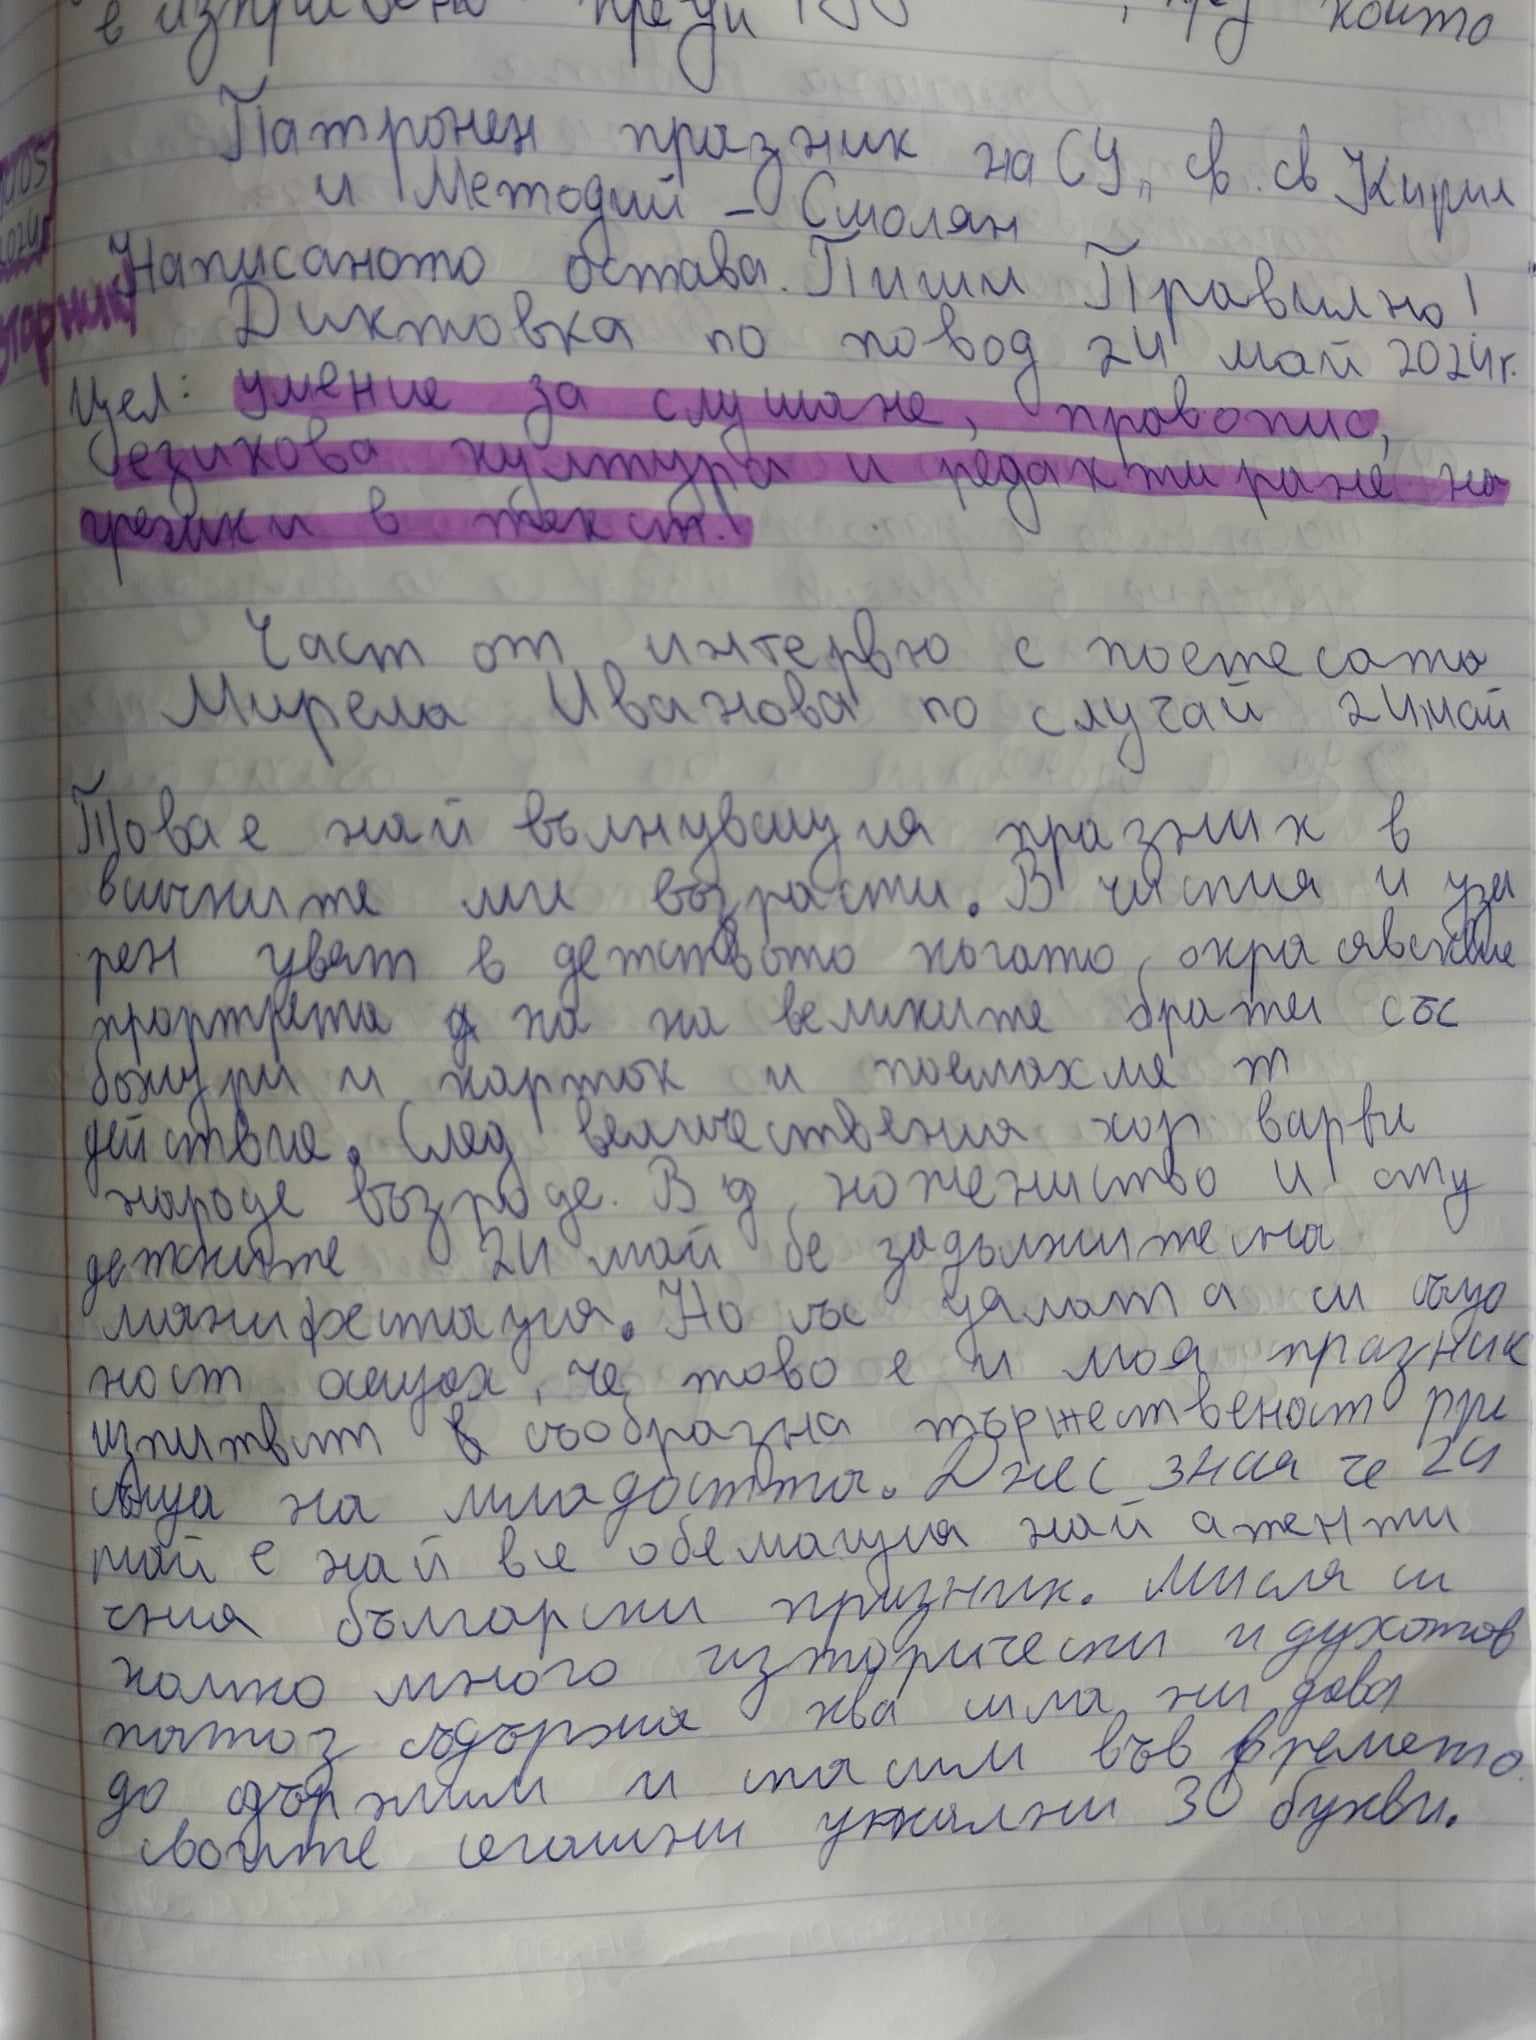 който
Патронен празник на СУ „ св. св Кирил
и Методий – Смолян
Написаното остава. Пиши Правилно!
вторник
Диктовка по повод 24 май 2024г.
Цел: умение за слушане, правопис,
езикова култура и редактиране на
грешки в текст.
Част от интервю с поетесата
Мирела Иванова по случай 24 май
Това е най вълнуващия празник в
всичките ми възрасти. В чистия и уза
рен цвят в детството когато, окра сявахме
прортрета на на великите братя със
божури и картон и поемахме т
действие. След величествения хор варви
народе възроде. В д ножеииство и сту
дентките 24 май бе задължителна
манифестация. Но със цялата си същ
ност осещах, че това е и моя празник
изпитвт в съобразна тържественост при
съща на младостта. Днес зная че 24
май е най все обемащия най атенти
чния български празник. Мисля си
колко много изторически и духотов
патоз съдържа ква сила ни дава
да държим и спасим във времето
своите сегашни уникални 30 букви.